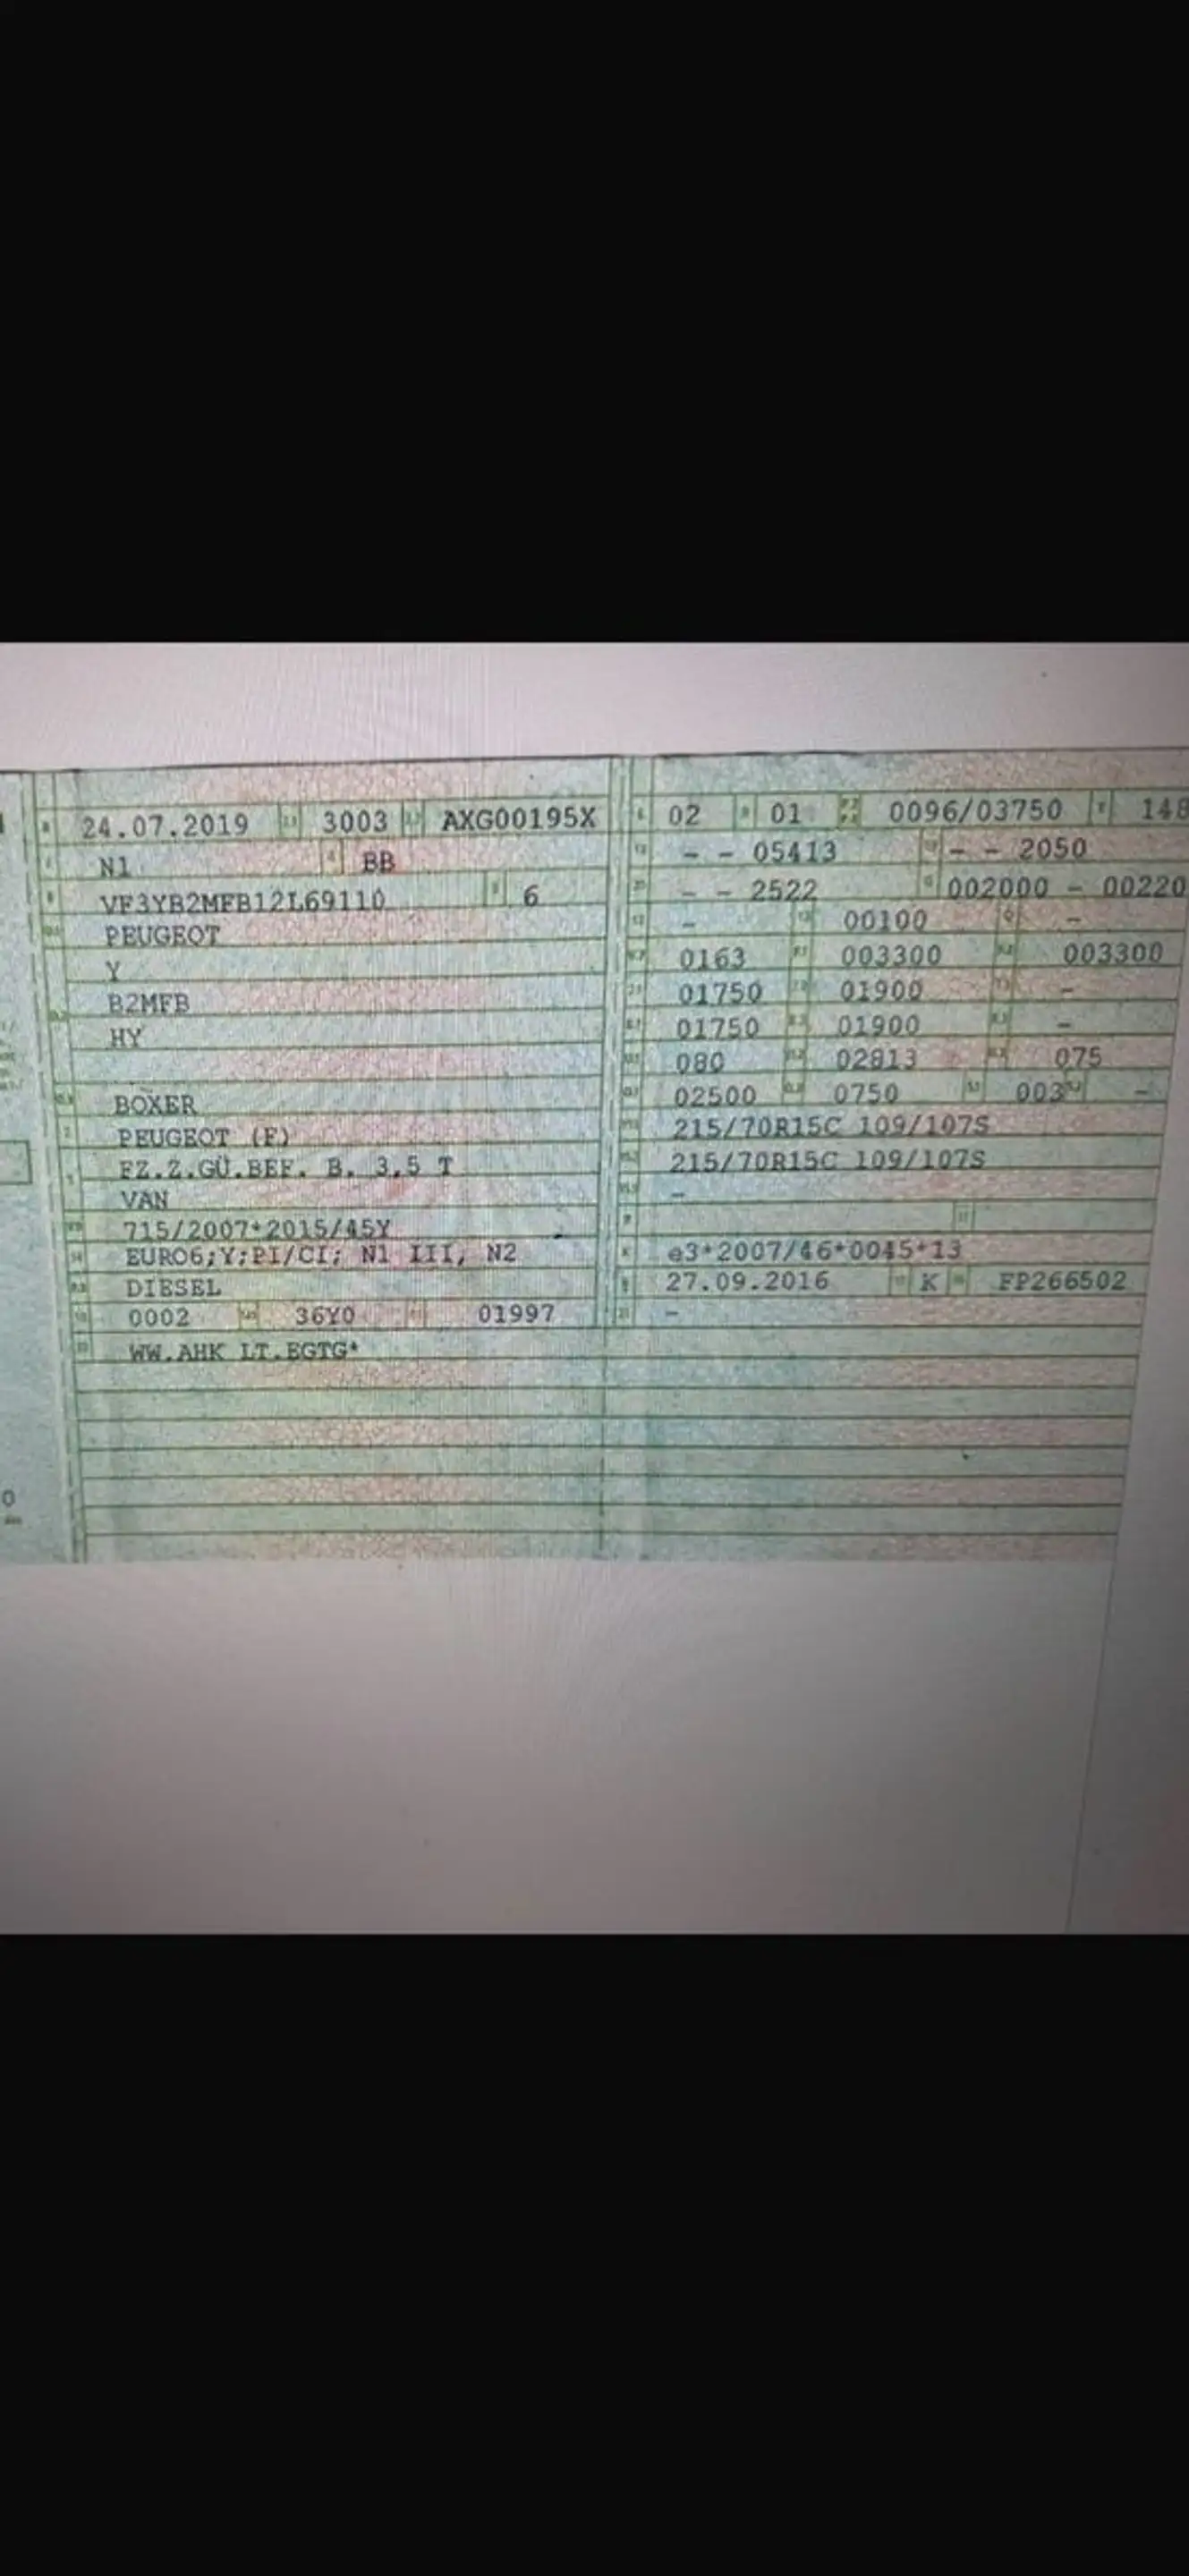 24.07.2019 3003 AXG00195X
N1 BB
VF3YB2MFB12L69110 6
PEUGEOT
Y
B2MFB
HY
BOXER
PEUGEOT (F)
FZ.Z.GÜ.BEF. B. 3,5 T
VAN
715/2007*2015/45Y
EURO6;Y;PI/CI; N1 III, N2
DIESEL
0002 36Y0 01997
WW.AHK LT.EGTG*
02 01 0096/03750 148
- - 05413 - - 2050
- - 2522 002000 - 00220
- 00100 -
0163 003300 003300
01750 01900 -
01750 01900 -
080 02813 075
02500 0750 003 -
215/70R15C 109/107S
215/70R15C 109/107S
-
e3*2007/46*0045*13
27.09.2016 K FP266502
-